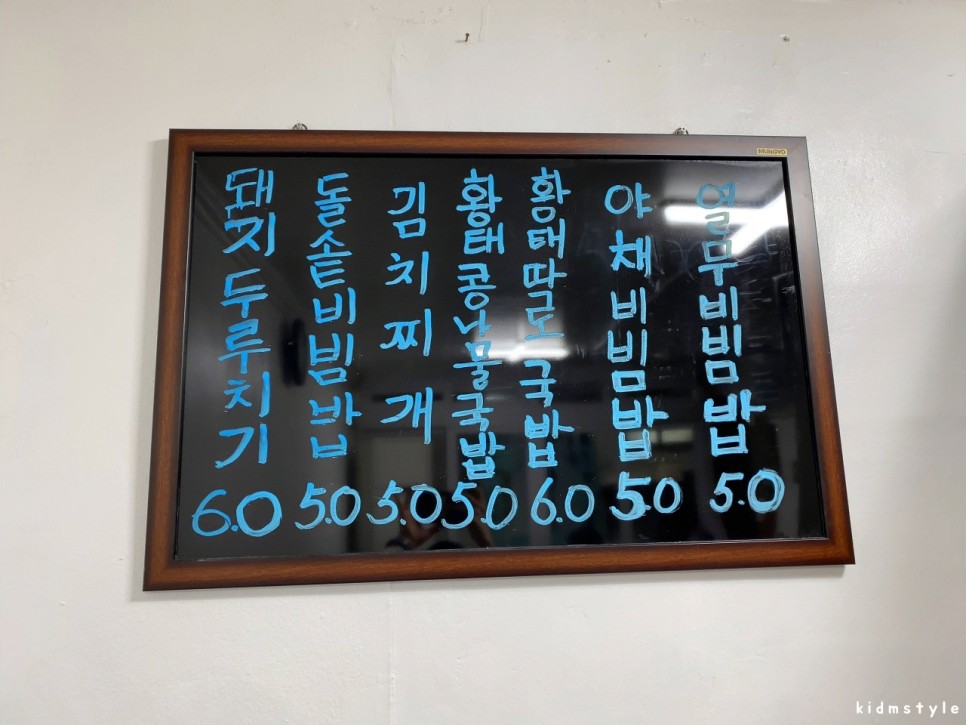 돼지두루치기 6.0
돌솥비빔밥 5.0
김치찌개 5.0
황태콩나물국밥 5.0
황태따로국밥 6.0
야채비빔밥 5.0
열무비빔밥 5.0
kidmstyle